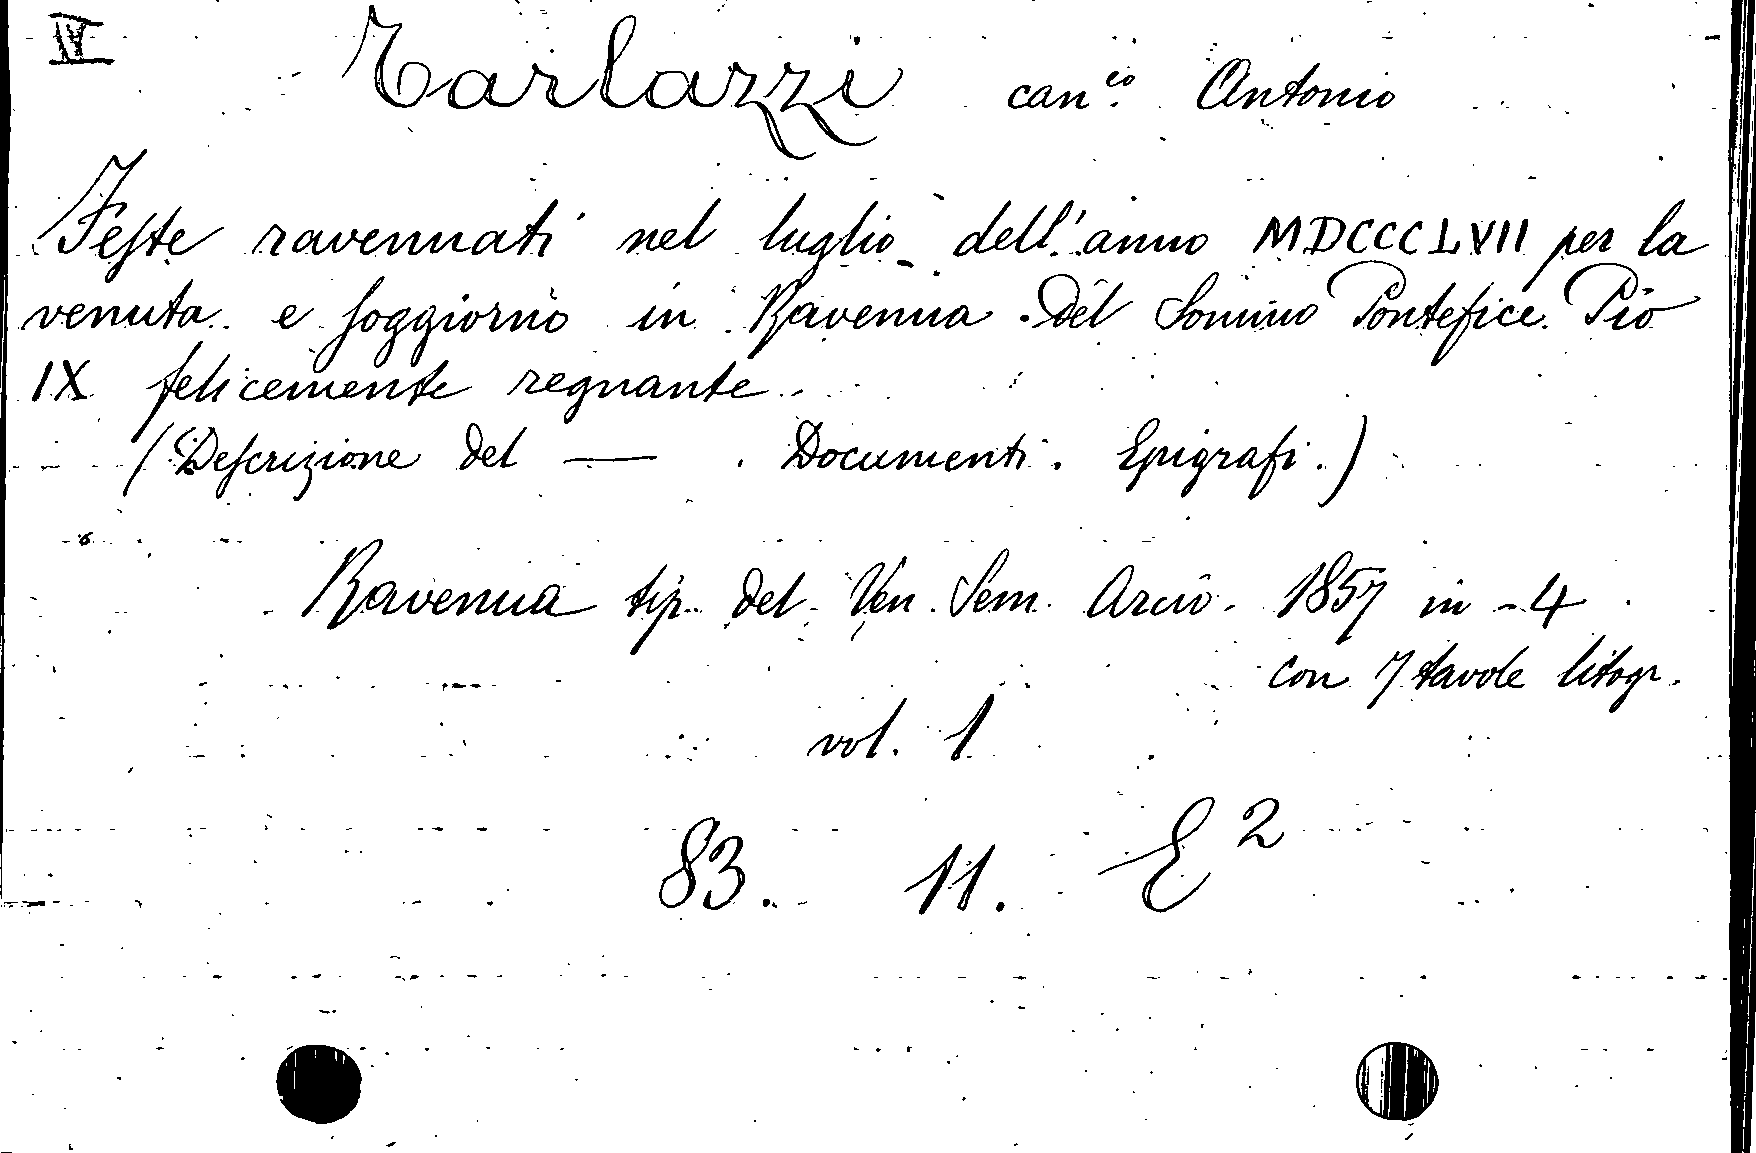 IV
Tarlazzi can.co Antonio
Feste ravennati nel luglio dell'anno MDCCCLVII per la
venuta e soggiorno in Ravenna del Sommo Pontefice Pio
IX felicemente regnante.
(Descrizione del — . Documenti. Epigrafi.)
Ravenna tip. del Ven. Sem. Arciv. 1857 in-4
con 7 tavole litogr.
vol. 1
83. 11. E 2